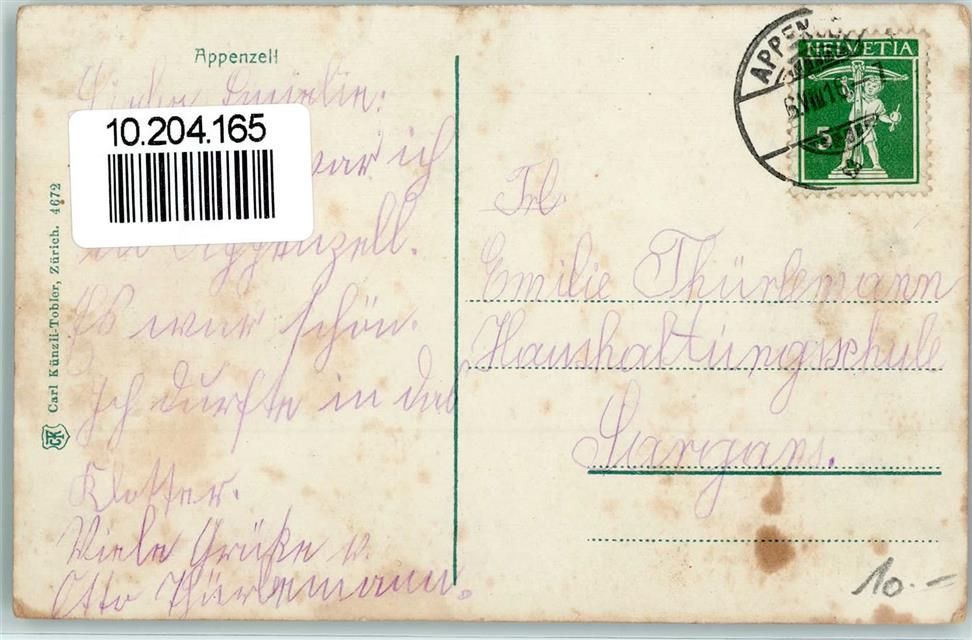 Appenzell
Liebe Emilie:
10.204.165
war ich
in Appenzell.
Es war schön.
Ich durfte in das
Kloster.
Viele Grüße v.
Otto Thürlemann.
Carl Künzli-Tobler, Zürich. 4672
CKT
APPENZELL
HELVETIA
5
Frl.
Emilie Thürlemann
Haushaltungsschule
Sargans.
10.-